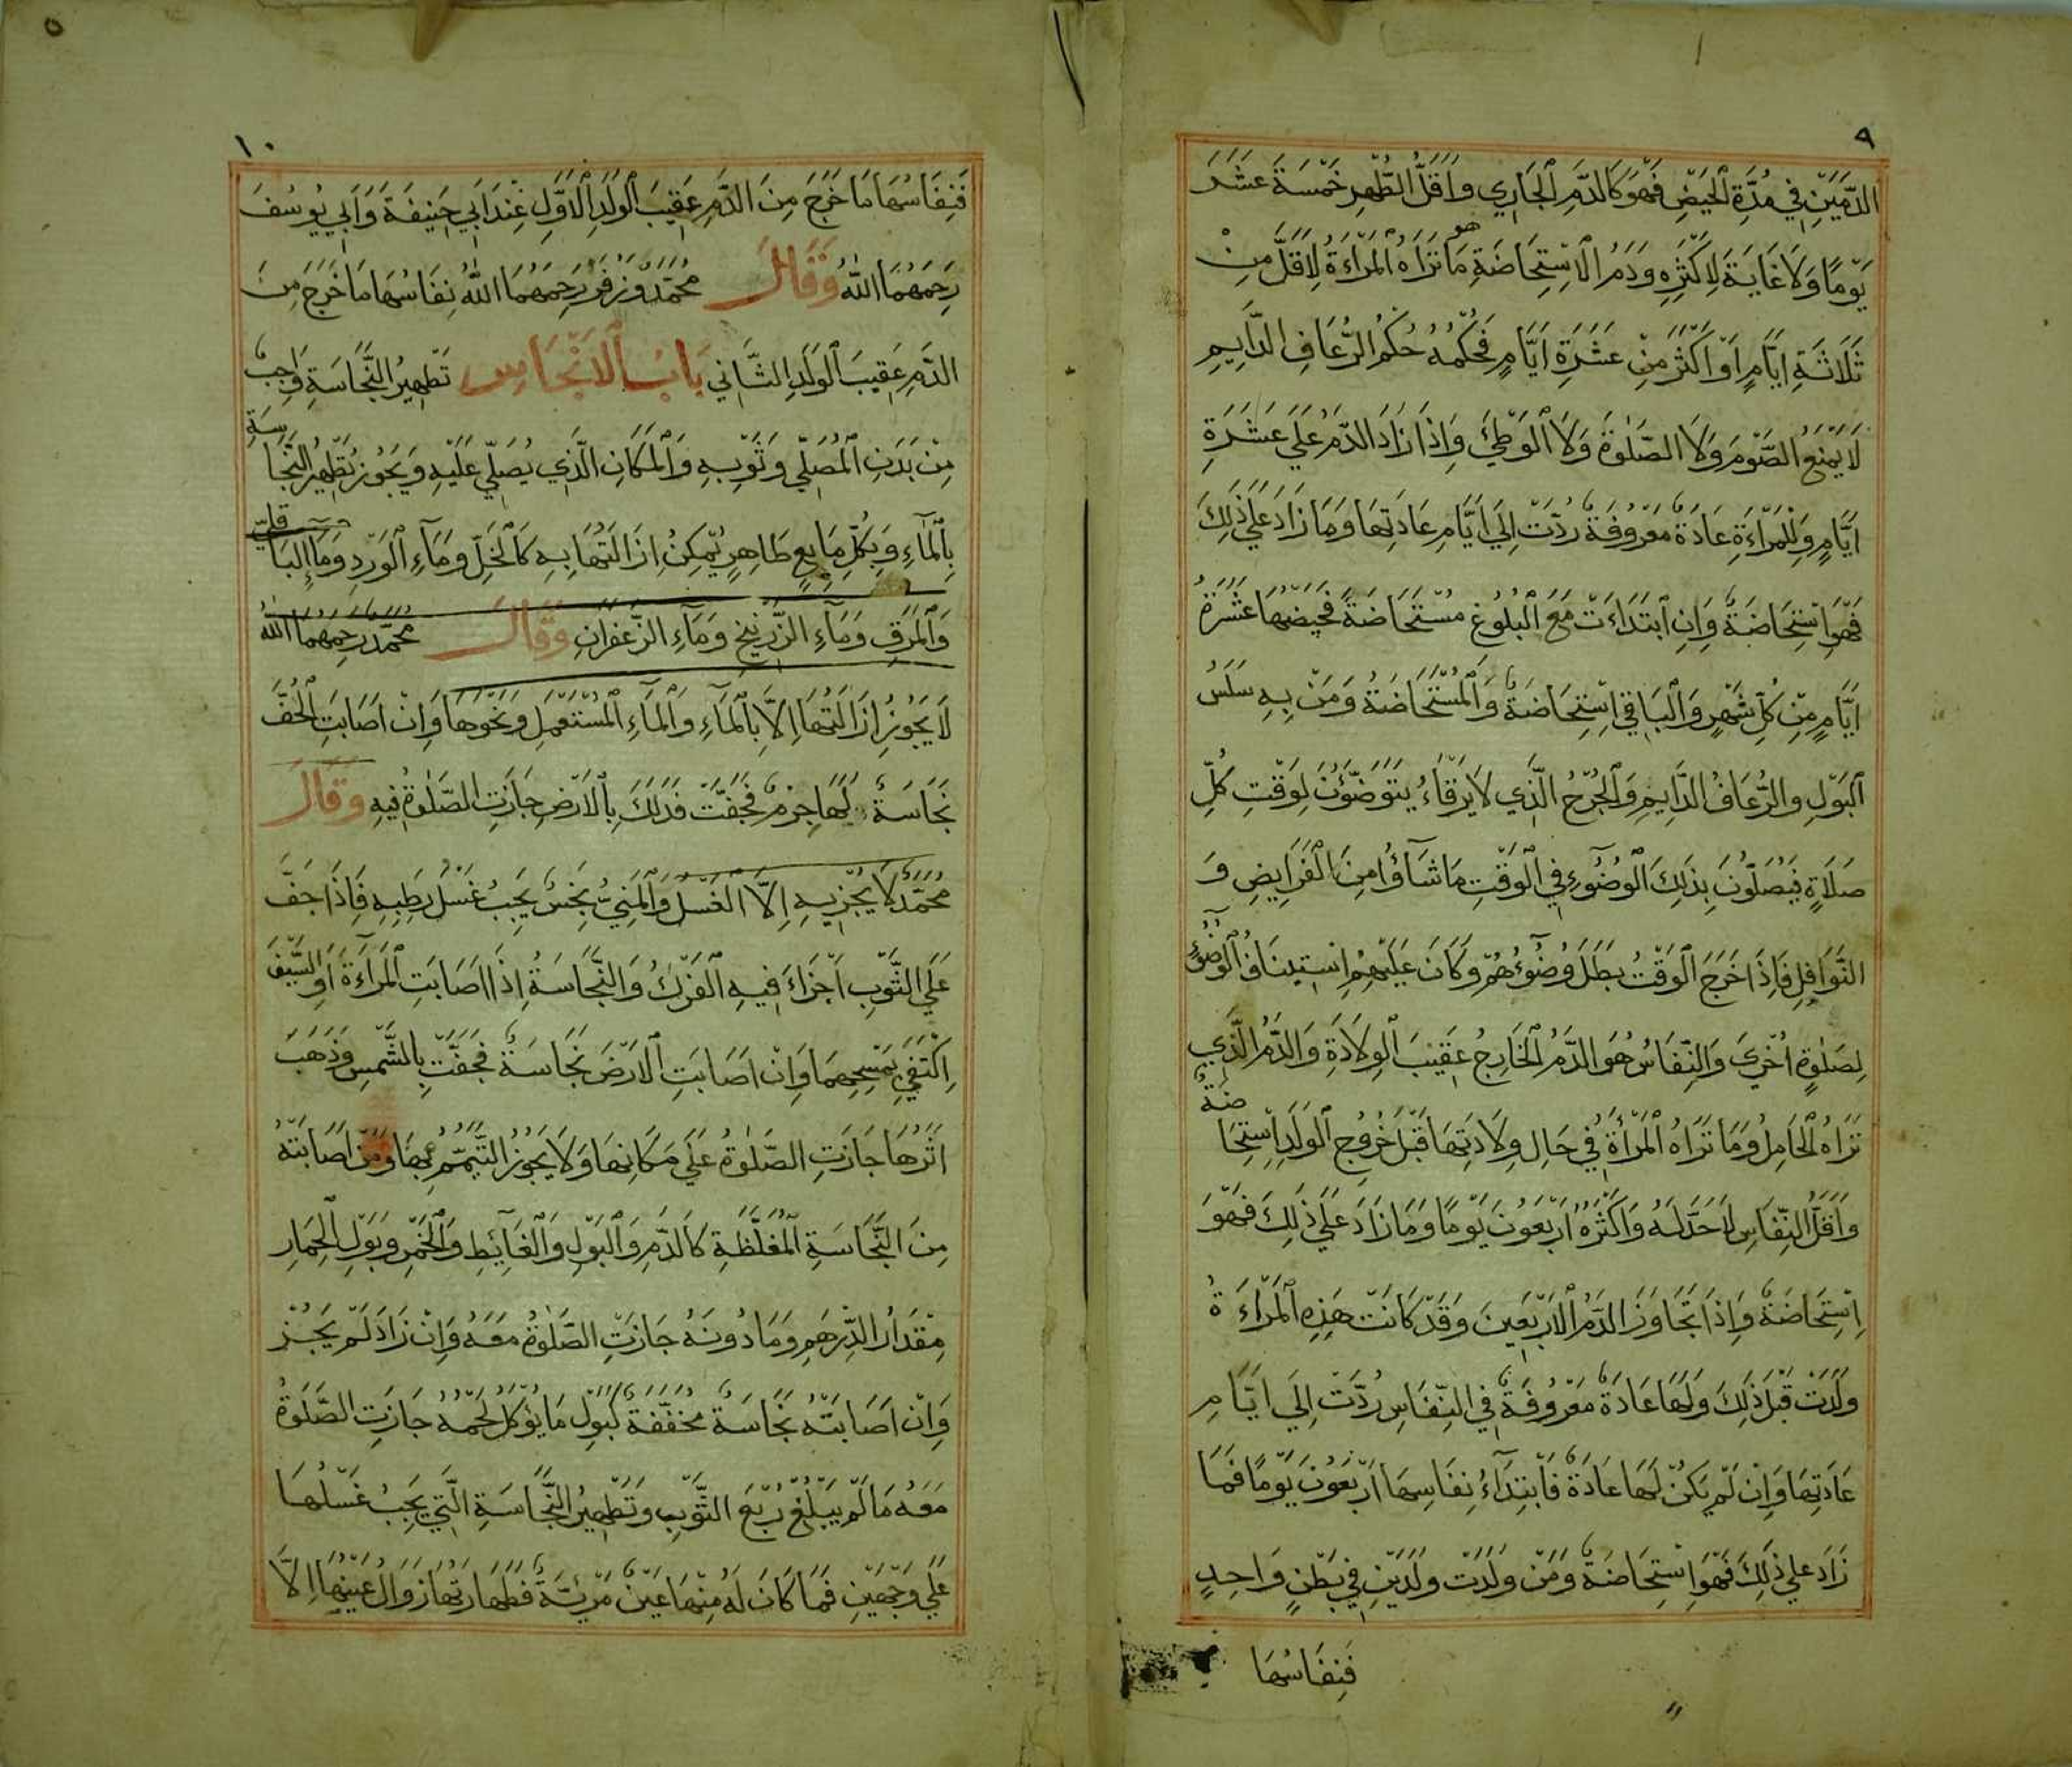 ٩
الدَّمَيْنِ فِي مُدَّةِ الْحَيْضِ فَهُوَ كَالدَّمِ الْجَارِي وَاَقَلُّ الطُّهْرِ خَمْسَةَ عَشَرَ
يَوْمًا وَلَا غَايَةَ لِاَكْثَرِهِ وَدَمُ الْاِسْتِحَاضَةِ هو مَا تَرَاهُ الْمَرْاَءَةُ لِاَقَلَّ مِنْ
ثَلَاثَةِ اَيَّامٍ اَوْ اَكْثَرَ مِنْ عَشَرَةِ اَيَّامٍ فَحُكْمُهُ حُكْمُ الرُّعَافِ الدَّايِمِ
لَا يَمْنَعُ الصَّوْمَ وَلَا الصَّلٰوةَ وَلَا الْوَطْئَ وَاِذَا زَادَ الدَّمُ عَلَي عَشَرَةِ
اَيَّامٍ وَلِلْمَرْاَءَةِ عَادَةٌ مَعْرُوفَةٌ رُدَّتْ اِلَي اَيَّامِ عَادَتِهَا وَمَا زَادَ عَلَي ذَلِكَ
فَهُوَ اسْتِحَاضَةٌ وَاِنِ ابْتَدَاءَتْ مَعَ الْبُلُوغِ مُسْتَحَاضَةً فَحَيْضُهَا عَشَرَةُ
اَيَّامٍ مِنْ كُلِّ شَهْرٍ وَالْبَاقِي اِسْتِحَاضَةٌ وَالْمُسْتَحَاضَةُ وَمَنْ بِهِ سَلَسُ
الْبَوْلِ وَالرُّعَافُ الدَّايِمِ وَالْجُرْحُ الَّذِي لَا يَرْقَاءُ يَتَوَضَّؤُنَ لِوَقْتِ كُلِّ
صَلَاةٍ فَيُصَلُّونَ بِذَلِكَ الْوُضُوءِ فِي الْوَقْتِ مَا شَآؤُا مِنَ الْفَرَايِضِ وَ
النَّوَافِلِ فَاِذَا خَرَجَ الْوَقْتُ بَطَلَ وُضُوءُهُمْ وَكَانَ عَلَيْهِمِ اسْتِينَافُ الْوُضُوءِ
لِصَلٰوةٍ اُخْرَي وَالنِّفَاسُ هُوَ الدَّمُ الْخَارِجُ عَقِيبَ الْوِلَادَةِ وَالدَّمُ الَّذِي
تَرَاهُ الْحَامِلُ وَمَا تَرَاهُ الْمَرْاَةُ فِي حَالِ وِلَادَتِهَا قَبْلَ خُرُوجِ الْوَلَدِ اِسْتِحَاضَةٌ
وَاَقَلُّ النِّفَاسِ لَا حَدَّ لَهُ وَاَكْثَرُهُ اَرْبَعُونَ يَوْمًا وَمَا زَادَ عَلَي ذَلِكَ فَهُوَ
اِسْتِحَاضَةٌ وَاِذَا تَجَاوَزَ الدَّمُ الْاَرْبَعِينَ وَقَدْ كَانَتْ هَذِهِ الْمَرْاَءَةُ
وَلَدَتْ قَبْلَ ذَلِكَ وَلَهَا عَادَةٌ مَعْرُوفَةٌ فِي النِّفَاسِ رُدَّتْ اِلَي اَيَّامِ
عَادَتِهَا وَاِنْ لَمْ يَكُنْ لَهَا عَادَةٌ فَابْتِدَآءُ نِفَاسِهَا اَرْبَعُونَ يَوْمًا فَمَا
زَادَ عَلَي ذَلِكَ فَهُوَ اسْتِحَاضَةٌ وَمَنْ وَلَدَتْ وَلَدَيْنِ فِي بَطْنٍ وَاحِدٍ
فَنِفَاسُهَا
٥
١٠
فَنِفَاسُهَا مَا خَرَجَ مِنَ الدَّمِ عَقِيبَ الْوَلَدِ الْاَوَّلِ عِنْدَ اَبِي حَنِيفَةَ وَاَبِي يُوسُفَ
رَحِمَهُمَا اللّٰهُ وَقَالَ مُحَمَّدٌ وَزُفَرُ رَحِمَهُمَا اللّٰهُ نِفَاسُهَا مَا خَرَجَ مِنَ
الدَّمِ عَقِيبَ الْوَلَدِ الثَّانِي بَابُ الْاَنْجَاسِ تَطْهِيرُ النَّجَاسَةِ وَاجِبٌ
مِنْ بَدَنِ الْمُصَلِّي وَثَوْبِهِ وَالْمَكَانِ الَّذِي يُصَلِّي عَلَيْهِ وَيَجُوزُ تَطْهِيرُ النَّجَاسَةِ
بِالْمَاءِ وَبِكُلِّ مَايِعٍ طَاهِرٍ يُمْكِنُ اِزَالَتُهَا بِهِ كَالْخَلِّ وَمَاءِ الْوَرْدِ وَمَآءِ الْبَاقِلِّي
وَالْمَرَقِ وَمَاءِ الزَّرْنِيخِ وَمَاءِ الزَّعْفَرَانِ وَقَالَ مُحَمَّدٌ رَحِمَهُمَا اللّٰهُ
لَا يَجُوزُ اِزَالَتُهَا اِلَّا بِالْمَآءِ وَالْمَآءِ الْمُسْتَعْمَلِ وَنَحْوِهَا وَاِنْ اَصَابَتِ الْخُفَّ
نَجَاسَةٌ لَهَا جِرْمٌ فَجَفَّتْ فَدَلَكَ بِالْاَرْضِ جَازَتِ الصَّلٰوةُ فِيهِ وَقَالَ
مُحَمَّدٌ لَا يُجْزِيهِ اِلَّا الْغَسْلُ وَالْمَنِيُّ نَجِسٌ يَجِبُ غَسْلُ رَطْبِهِ فَاِذَا جَفَّ
عَلَي الثَّوْبِ اَجْزَاءَ فِيهِ الْفَرْكُ وَالنَّجَاسَةُ اِذَا اَصَابَتِ الْمِرْاَءَةَ اَوِ السَّيْفَ
اِكْتَفَي بِمَسْحِهِمَا وَاِنْ اَصَابَتِ الْاَرْضَ نَجَاسَةٌ فَجَفَّتْ بِالشَّمْسِ وَذَهَبَ
اَثَرُهَا جَازَتِ الصَّلٰوةُ عَلَي مَكَانِهَا وَلَا يَجُوزُ التَّيَمُّمُ بِهَا وَمَنْ اَصَابَتْهُ
مِنَ النَّجَاسَةِ الْمُغَلَّظَةِ كَالدَّمِ وَالْبَوْلِ وَالْغَآيِطِ وَالْخَمْرِ وَبَوْلِ الْحِمَارِ
مِقْدَارُ الدِّرْهَمِ وَمَا دُونَهُ جَازَتِ الصَّلٰوةُ مَعَهُ وَاِنْ زَادَ لَمْ يَجُزْ
وَاِنْ اَصَابَتْهُ نَجَاسَةٌ مُخَفَّفَةٌ كَبَوْلِ مَا يُؤْكَلُ لَحْمُهُ جَازَتِ الصَّلٰوةُ
مَعَهُ مَا لَمْ يَبْلُغْ رُبْعَ الثَّوْبِ وَتَطْهِيرُ النَّجَاسَةِ الَّتِي يَجِبُ غَسْلُهَا
عَلَي وَجْهَيْنِ فَمَا كَانَ لَهُ مِنْهَا عَيْنٌ مَرْئِيَّةٌ فَطَهَارَتُهَا زَوَالُ عَيْنِهَا اِلَّا